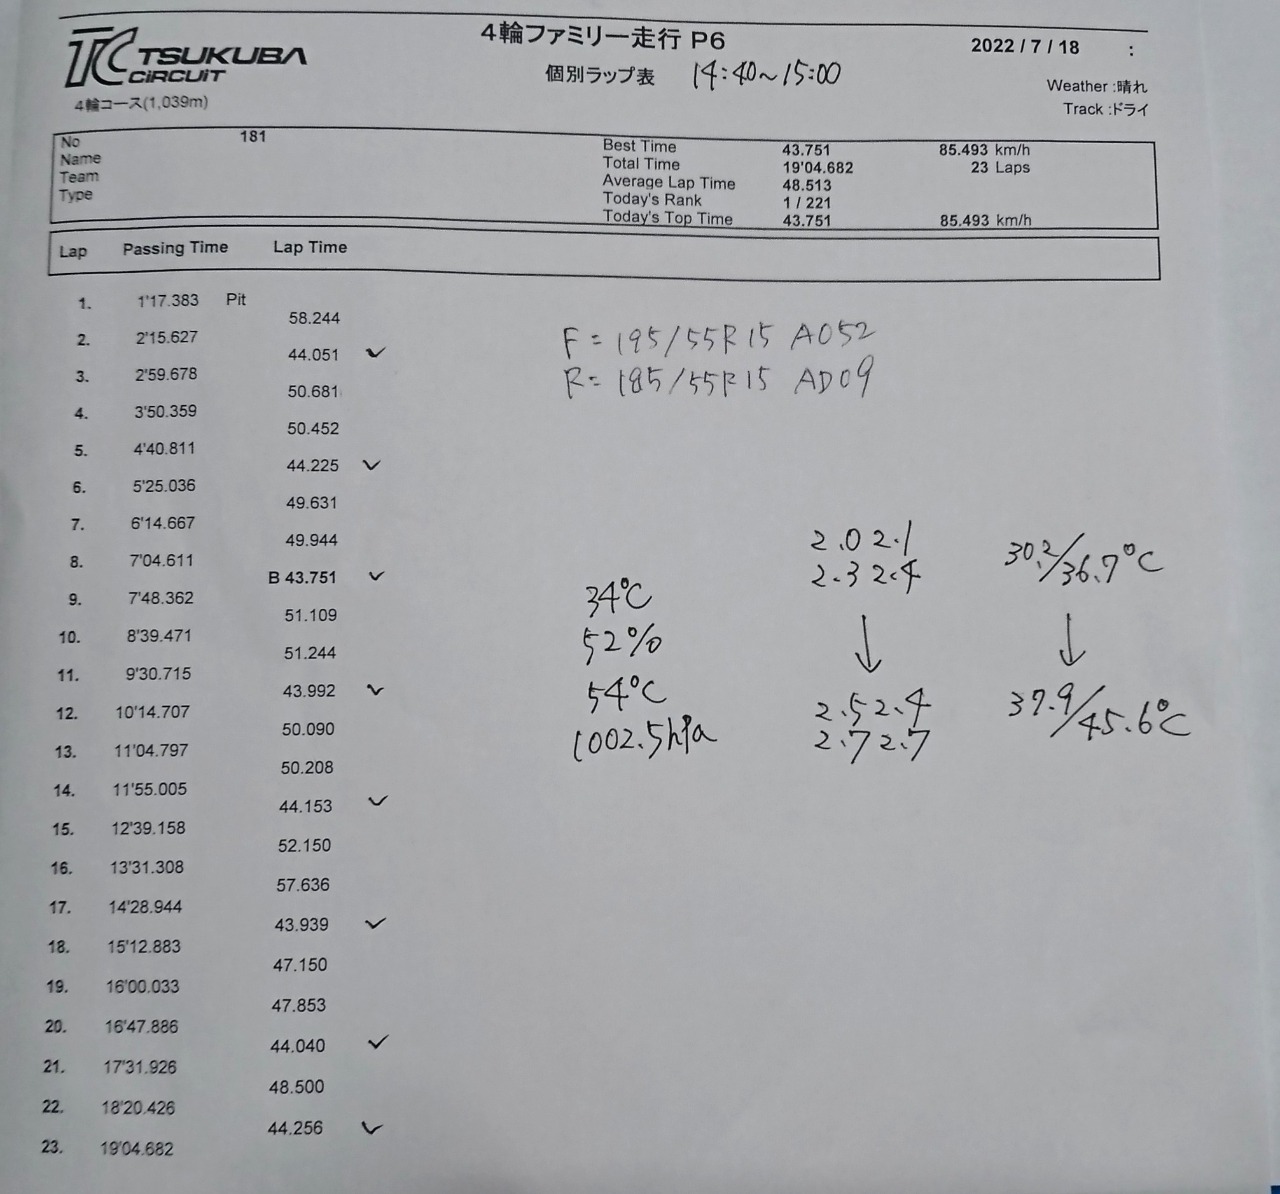 TC TSUKUBA CiRCUiT
4輪コース(1,039m)
4輪ファミリー走行 P6
個別ラップ表 14:40~15:00
2022 / 7 / 18 :
Weather :晴れ
Track :ドライ
No 181
Name
Team
Type
Best Time 43.751 85.493 km/h
Total Time 19'04.682 23 Laps
Average Lap Time 48.513
Today's Rank 1 / 221
Today's Top Time 43.751 85.493 km/h
Lap Passing Time Lap Time
1. 1'17.383 Pit
58.244
2. 2'15.627
44.051 ✓
3. 2'59.678
50.681
4. 3'50.359
50.452
5. 4'40.811
44.225 ✓
6. 5'25.036
49.631
7. 6'14.667
49.944
8. 7'04.611
B 43.751 ✓
9. 7'48.362
51.109
10. 8'39.471
51.244
11. 9'30.715
43.992 ✓
12. 10'14.707
50.090
13. 11'04.797
50.208
14. 11'55.005
44.153 ✓
15. 12'39.158
52.150
16. 13'31.308
57.636
17. 14'28.944
43.939 ✓
18. 15'12.883
47.150
19. 16'00.033
47.853
20. 16'47.886
44.040 ✓
21. 17'31.926
48.500
22. 18'20.426
44.256 ✓
23. 19'04.682
F = 195/55R15 A052
R = 185/55R15 AD09
34°C
52%
54°C
1002.5hPa
2.0 2.1
2.3 2.4
↓
2.5 2.4
2.7 2.7
30.2/36.7°C
↓
37.9/45.6°C